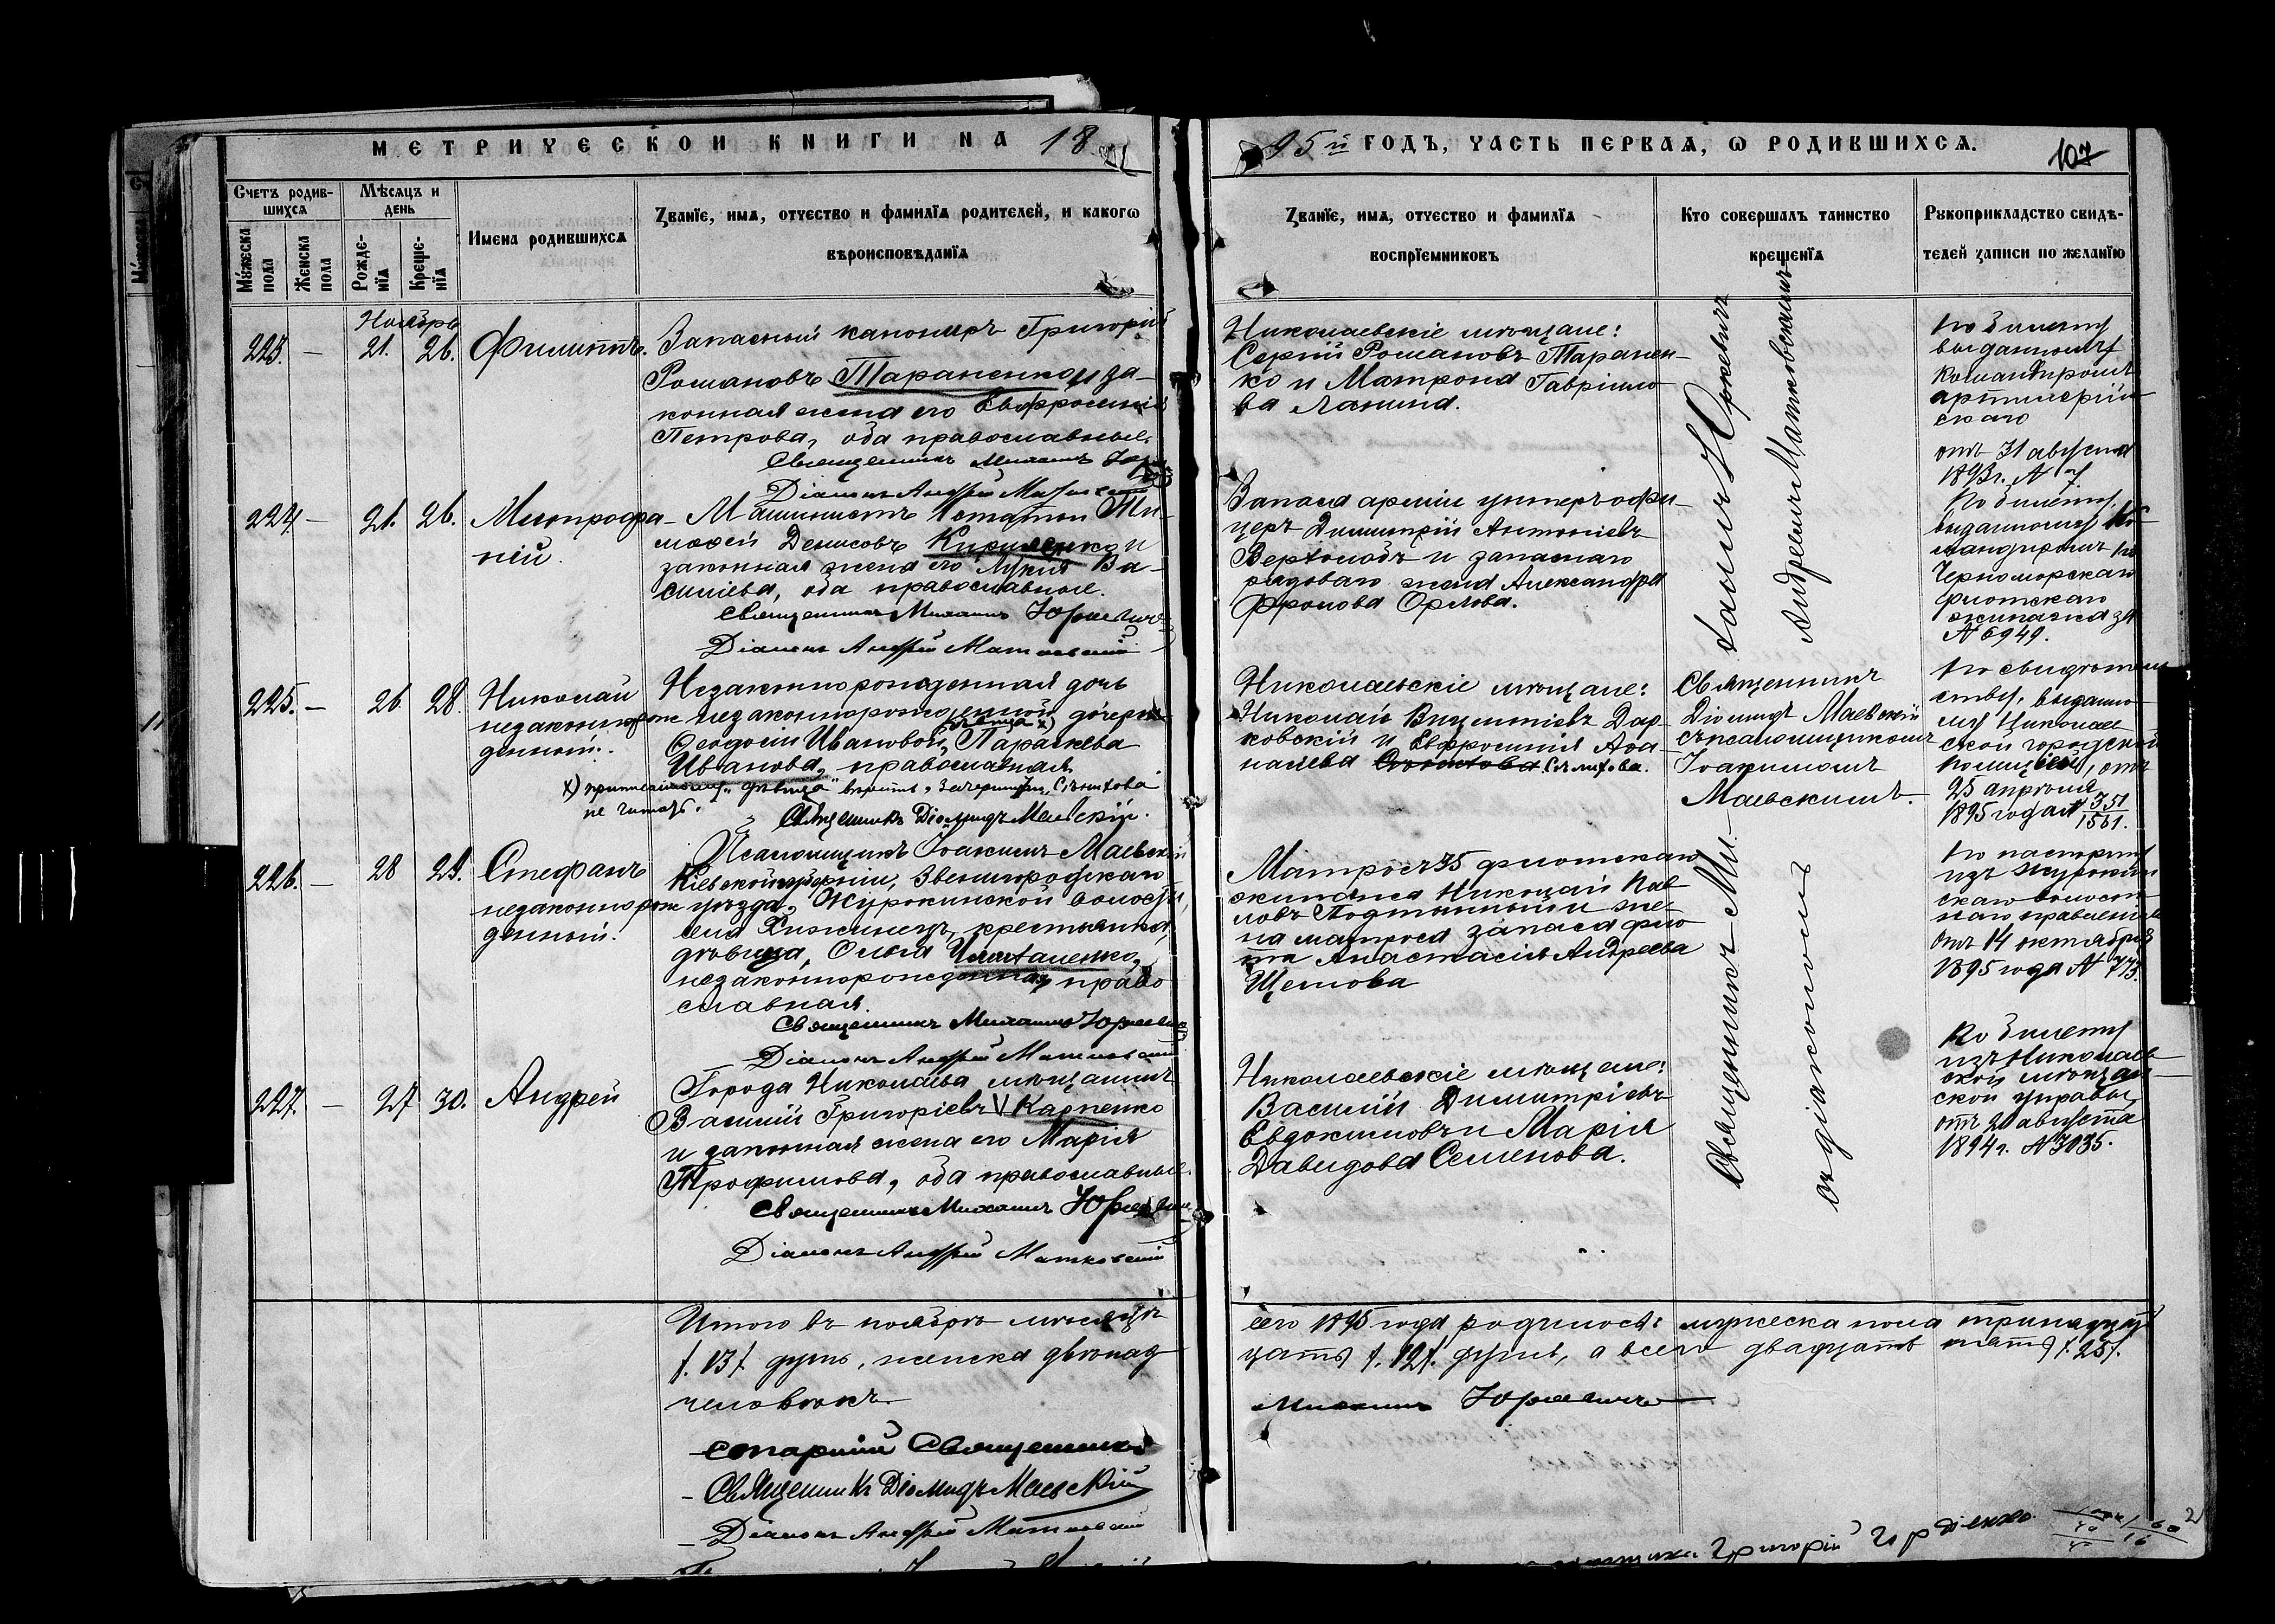 МЕТРИЧЕСКОЙ КНИГИ НА 18
95й ГОДЪ, ЧАСТЬ ПЕРВАЯ, Ѡ РОДИВШИХСЯ.
107
Счетъ родив-
шихся
Мѣсяцъ и
день
Мужеска
пола
Женска
пола
Рожде-
нїя
Креще-
нїя
Имена родившихся
Званїе, имя, отчество и фамилїя родителей, и какогѡ
вѣроисповѣданїя
Званїе, имя, отчество и фамилїя
воспрїемниковъ
Кто совершалъ таинство
крещенїя
Рукоприкладство свидѣ-
телей записи по желанїю
Ноябрь
223. — 21. 26. Филиппъ.
Запасный канониръ Григорій
Романовъ Тараненко и за-
конная жена его Евфросинія
Петрова, оба православные.
Священникъ Михаилъ
Діаконъ Андрей Матковскій
Николаевскіе мѣщане:
Сергій Романовъ Таранен-
ко и Матрона Гавріило-
ва Лапина.
По билету
выданному
командиромъ
артиллерій-
скаго
отъ 31 августа
1893 г. №
224 — 21. 26. Митрофа-
ній.
Машинистъ Ти-
мофей Денисовъ Кириленко и
законная жена его Лукія Ва-
сильева, оба православные.
Священникъ Михаилъ Юркевичъ
Діаконъ Андрей Матковскій
Запаса арміи унтеръ офи-
церъ Димитрій Антоніевъ
Вертоладъ и запаснаго
рядоваго жена Александра
Фролова Орлова.
По билету,
выданному ко-
мандиромъ
Черноморскаго
флотскаго
экипажа за
№ 6949.
225. — 26 28. Николай
незаконнорож
денный.
Незаконнорожденная дочь
незаконнорожденной дочери
дѣвица х)
Ѳеодосіи Ивановой, Параскева
Иванова, православная
х) приписанному „дѣвица" вѣрить, зачеркнутое, Слѣпова
не читать.
Священникъ Діомидъ Маевскій.
Псаломщикъ Іоакимъ Маевскій
Николаевскіе мѣщане:
Николай Викентіевъ Дар-
ковскій и Евфросинія Аѳа-
насьева
Священникъ
Діомидъ Маевскій
съ псаломщикомъ
Іоакимомъ
Маевскимъ.
По свидѣтель
ству, выданно-
му Николаев-
ской городской
полиціей, отъ
25 апрѣля
1895 года № 351/1561.
226. — 28 29. Стефанъ
незаконнорож
денный.
Кіевской губерніи, Звенигородскаго
уѣзда, Журжинской волости,
села крестьянка,
дѣвица, Ольга
незаконнорожденная, право
славная.
Священникъ Михаилъ Юркевичъ
Діаконъ Андрей Матковскій
Матросъ 35 флотскаго
экипажа Николай Пав-
ловъ и же-
на матроса запаса фло-
та Анастасія Андреева
Щеглова
По паспорту
изъ
скаго волост-
наго правленія
отъ 14 октября
1895 года № 773.
227. — 27 30. Андрей
Города Николаева мѣщанинъ
Василій Григоріевъ Карпенко
и законная жена его Марія
Трофимова, оба православные.
Священникъ Михаилъ Юркевичъ
Діаконъ Андрей Матковскій
Николаевскіе мѣщане:
Василій Димитріевъ
Евдокимовъ и Марія
Давидова Семенова.
По билету
изъ Николаев-
ской мѣщан-
ской управы,
отъ 20 августа
1894 г. № 3035.
Священникъ Ми-
хаилъ Юркевичъ
съ діакономъ
Андреемъ Матковскимъ
Итого въ ноябрѣ мѣсяцѣ
сего 1895 года родилось: мужеска пола тринадцать
/. 13 /. душъ, женска двѣнад
цать /. 12 /. душъ, а всего двадцать пять /. 25 /.
человѣкъ.
старшій Священникъ
Михаилъ Юркевичъ
Священникъ Діомидъ Маевскій
Діаконъ Андрей Матковскій
Григорій